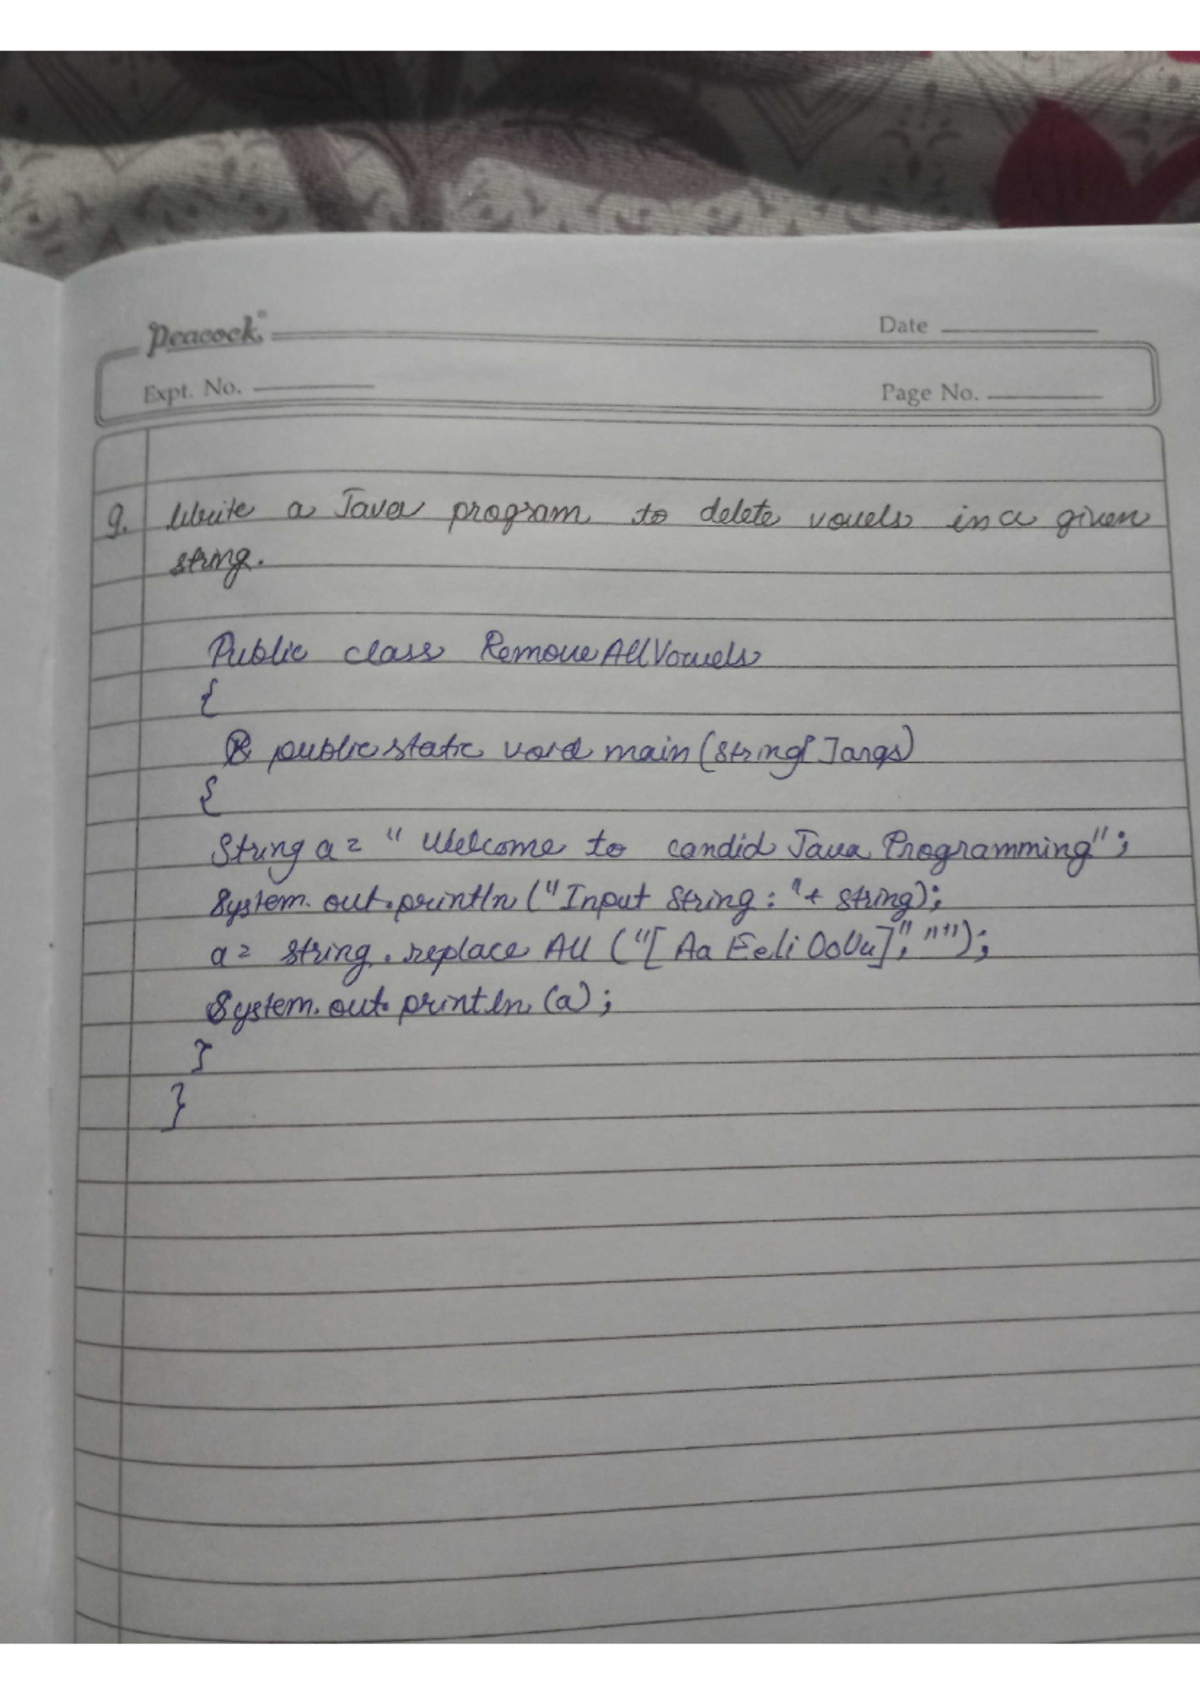 Peacock®
Date
Expt. No.
Page No.
9. Write a Java program to delete vowels in a given
string.
Public class RemoveAllVowels
{
public static void main (string[ ]args)
{
String a = " Welcome to candid Java Programming";
System. out.println ("Input String : "+ string);
a = string . replace All ("[ Aa EeIi OoUu]", "");
System. out. println (a) ;
}
}